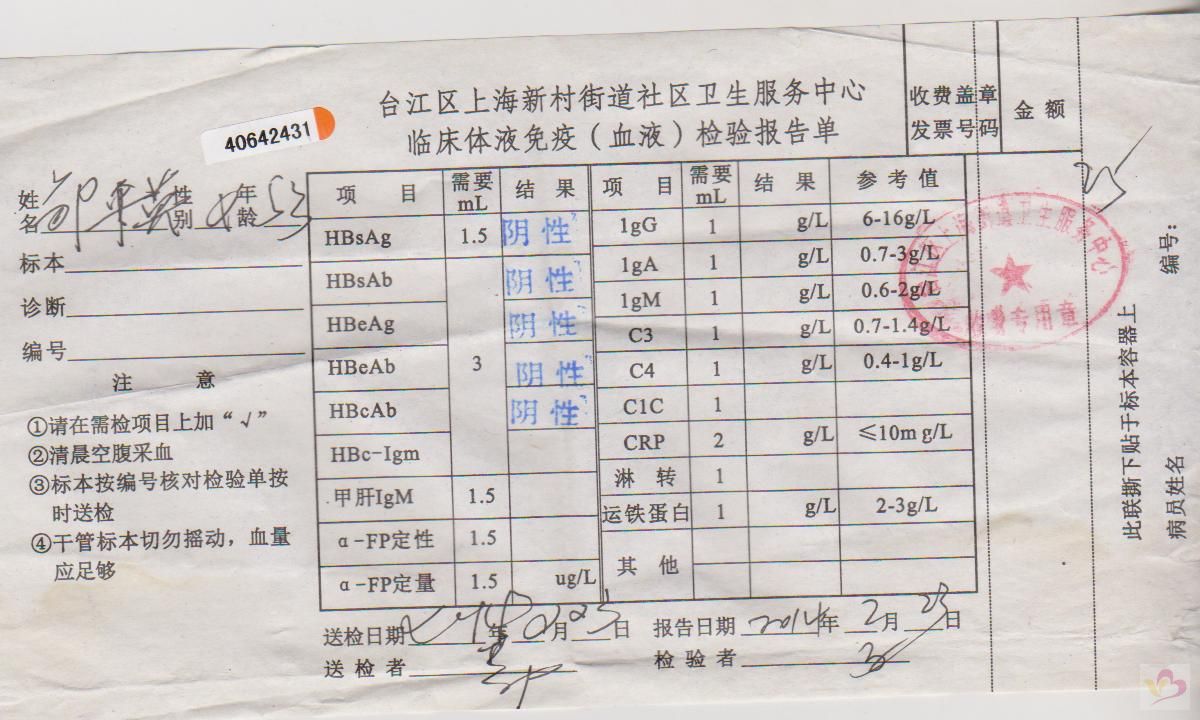 台江区上海新村街道社区卫生服务中心
临床体液免疫（血液）检验报告单
40642431
收费盖章
发票号码
金额
姓名 性别 女 年龄 53
标本
诊断
编号
注 意
①请在需检项目上加“√”
②清晨空腹采血
③标本按编号核对检验单按
时送检
④干管标本切勿摇动，血量
应足够
项 目 需要mL 结 果
HBsAg 1.5 阴性
HBsAb 3 阴性
HBeAg 阴性
HBeAb 阴性
HBcAb 阴性
HBc-Igm
甲肝IgM 1.5
α-FP定性 1.5
α-FP定量 1.5 ug/L
项 目 需要mL 结 果 参考值
1gG 1 g/L 6-16g/L
1gA 1 g/L 0.7-3g/L
1gM 1 g/L 0.6-2g/L
C3 1 g/L 0.7-1.4g/L
C4 1 g/L 0.4-1g/L
C1C 1
CRP 2 g/L ≤10m g/L
淋 转 1
运铁蛋白 1 g/L 2-3g/L
其 他
送检日期 年 月 日 报告日期 2014年 2月 23日
送检者 检验者
上海街道卫生服务中心
收费专用章
此联撕下贴于标本容器上
编号：
病员姓名